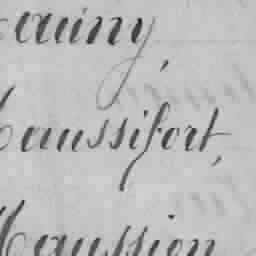 auiny,
Maussifort,
Maussion